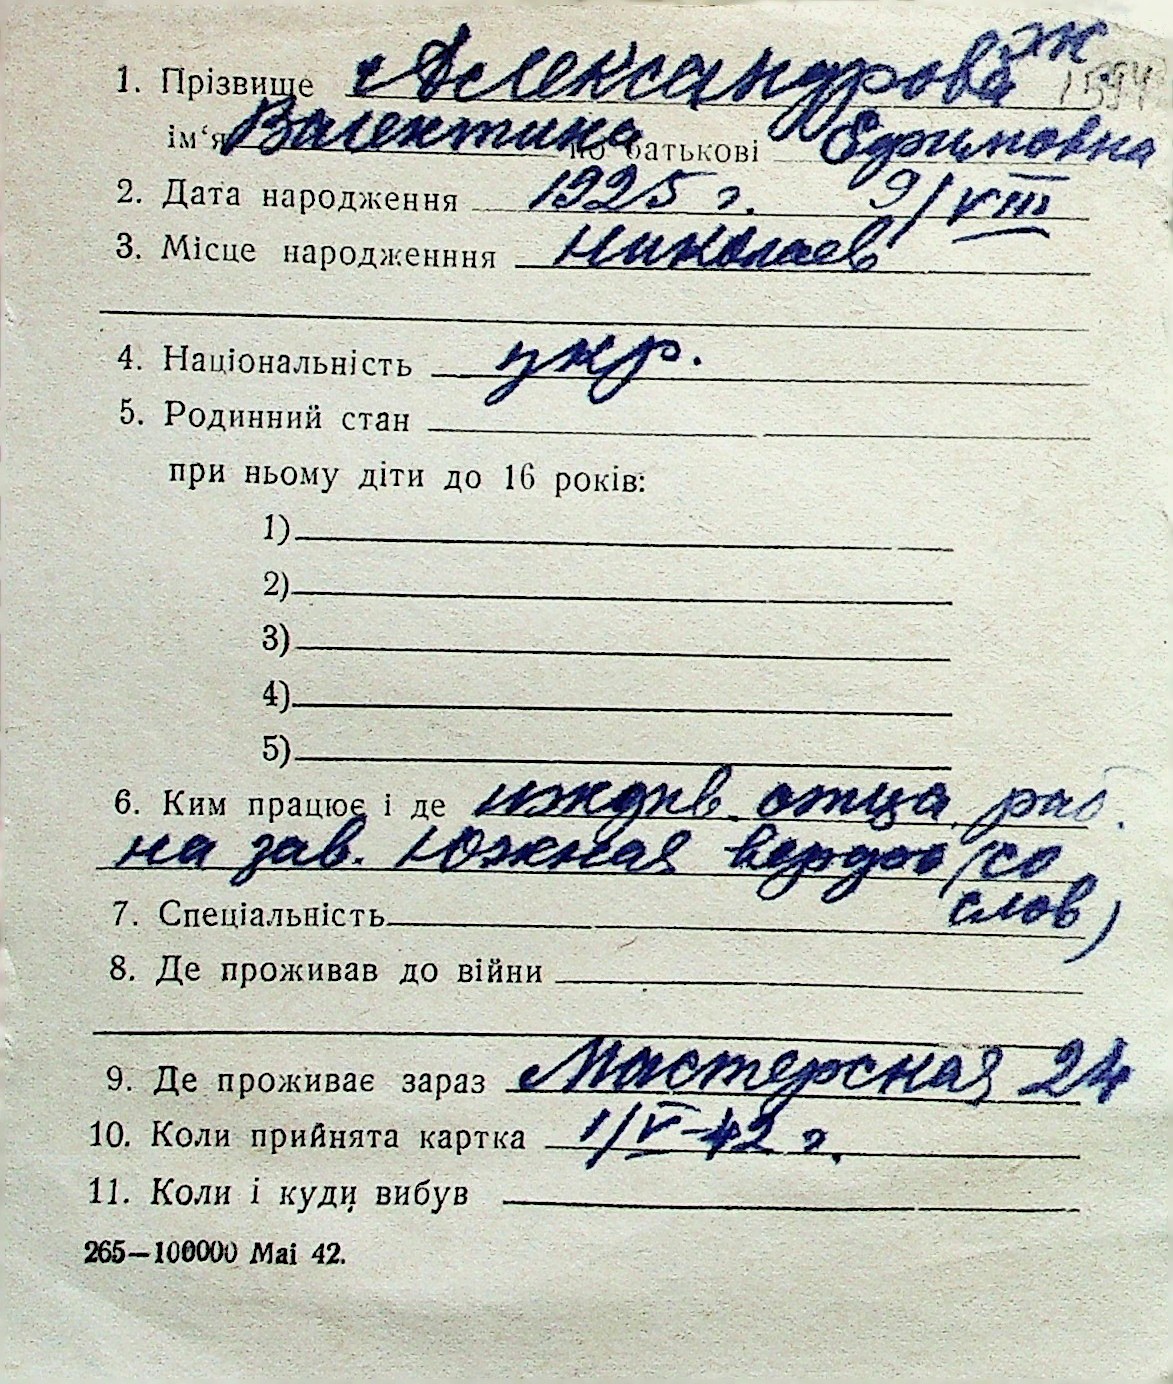 ж
1. Прізвище Александрова 1594
ім‘я Валентина по батькові Ефимовна
2. Дата народження 1925 г. 9/VIII
3. Місце народженння Николаев
4. Національність укр.
5. Родинний стан
при ньому діти до 16 років:
1)
2)
3)
4)
5)
6. Ким працює і де иждив. отца, раб.
на зав. Южная верфь (со
7. Спеціальність слов)
8. Де проживав до війни
9. Де проживає зараз Мастерская 24
10. Коли прийнята картка 1/V-42 г.
11. Коли і куди вибув
265—100000 Маі 42.